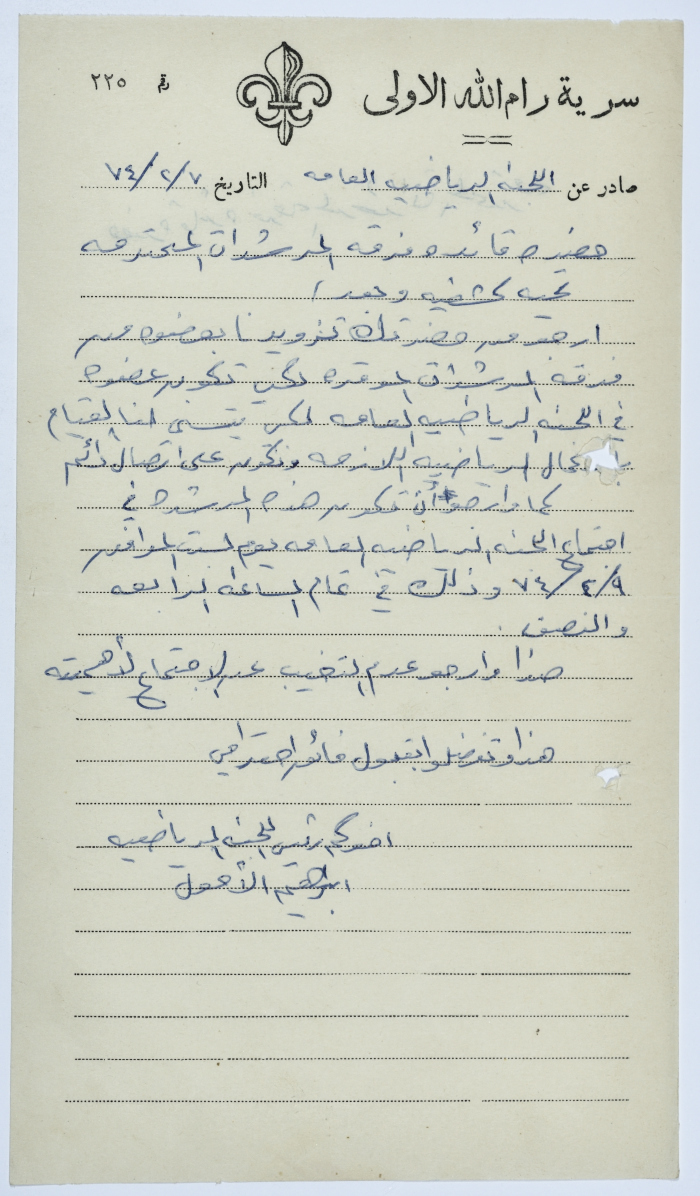 سرية رام الله الاولى
رقم ٢٢٥
صادر عن اللجنه الرياضيه العامه التاريخ ٧/ ٢/ ٧٤
حضرة قائده فرقه المرشدات المحترمه
تحيه كشفيه وبعد /
ارجو من حضرتك تزويدنا بعضوه من
فرقه المرشدات الموقره لكي تكون عضوه
في اللجنه الرياضيه العامه لكي يتسنى لنا القيام
الرياضيه اللازمه ونكون على اتصال دائم
كما وارجو أن تكون هذه المرشده في
اجتماع اللجنه الرياضيه العامه يوم السبت الموافق
٩/ ٢/ ٧٤ وذلك في تمام الساعه الرابعه
والنصف .
هذا وارجو عدم التغيب عن الاجتماع لأهميته
هذا وتفضلوا بقبول فائق احترامي
اخوكم رئيس اللجنه الرياضيه
ابراهيم